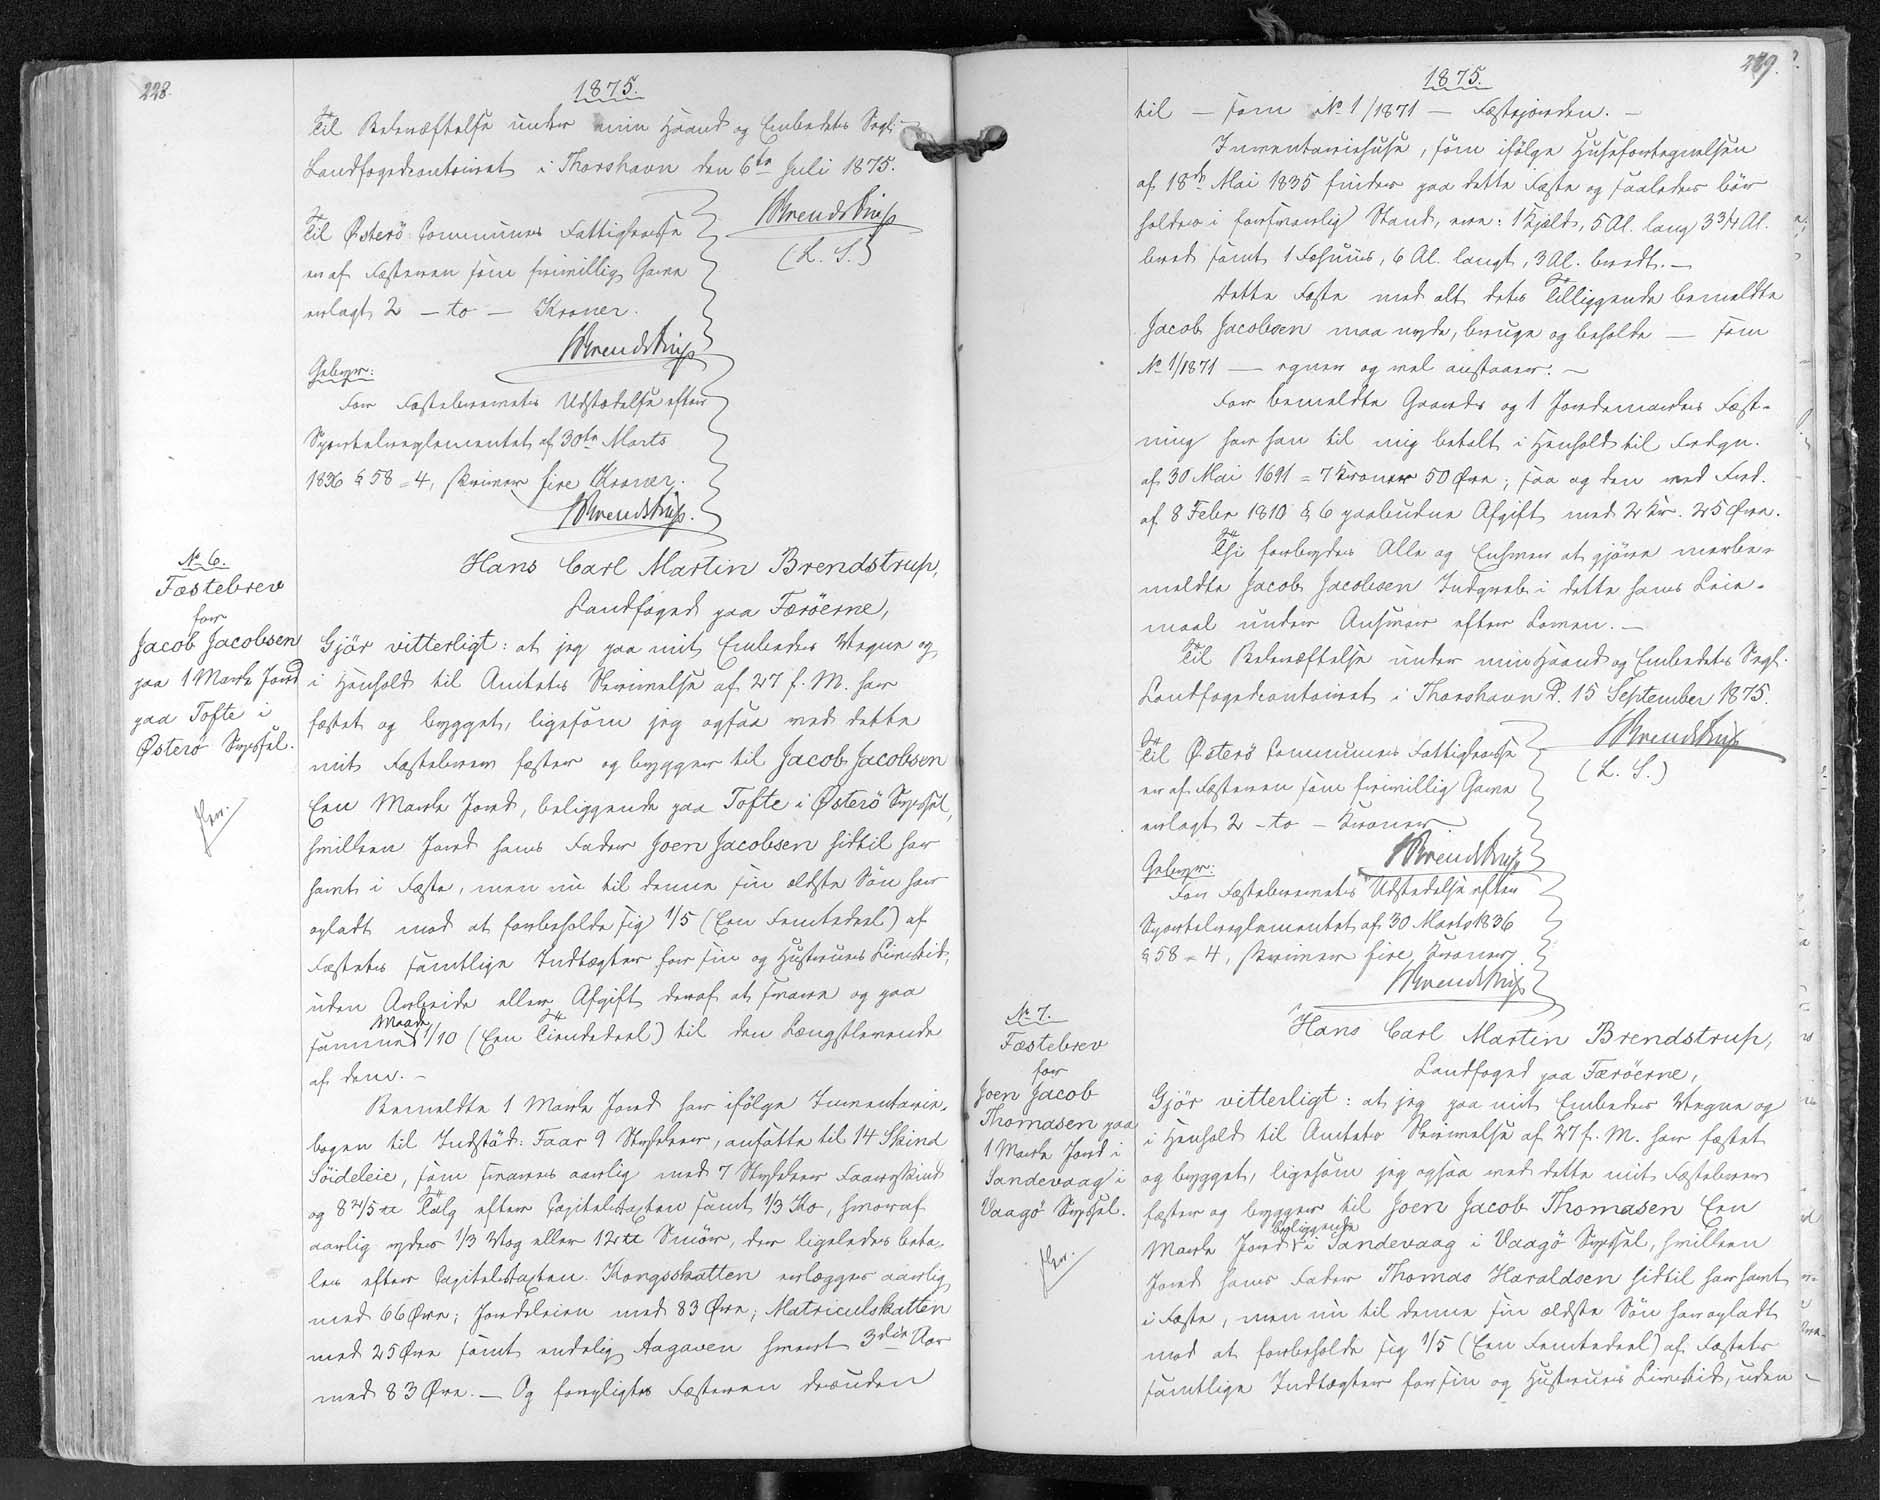 228.
1875.
Til Bekræftelse under min Haand og Embedets Segl.
Landfogedcontoiret i Thorshavn den 6te Juli 1875.
HBrendstrup
(L. S.)
Til Østerö Communes Fattigkasse
er af Fæsteren som frivillig Gave
erlagt 2 - to - Kroner.
HBrendstrup
Gebyr:
For Fæstebrevets Udstædelse efter
Sportelreglementet af 30te Marts
1836 § 58 = 4, skriver fire Kroner.
HBrendstrup.
No 6.
Fæstebrev
for
Jacob Jacobsen
paa 1 Mark Jord
paa Tofte i
Østerö Syssel.
Hans Carl Martin Brendstrup,
Landfoged paa Færöerne,
Gjör vitterligt: at jeg paa mit Embedes Vegne og
i Henhold til Amtets Skrivelse af 27 f. M. har
fæstet og bygget, ligesom jeg ogsaa ved dette
mit Fæstebrev fæster og bygger til Jacob Jacobsen
Een Mark Jord, beliggende paa Tofte i Østerö Syssel,
hvilken Jord hans Fader Joen Jacobsen hidtil har
havt i Fæste, men nu til denne sin ældste Sön har
opladt mod at forbeholde sig 1/5 (Een Femtedeel) af
Fæstets samtlige Indtægter for sin og Hustrues Livstid,
uden Arbeide eller Afgift deraf at svare og paa
samme Maade 1/10 (Een Tiendedeel) til den Længstlevende
af dem. -
Bemeldte 1 Mark Jord har ifölge Inventarie-
bogen til Indstöd: Faar 9 Stykker, ansatte til 14 Skind
Söideleie, som svares aarlig med 7 Stykker Faareskind
og 8 2/5 ℔ Talg efter Capitelstaxten samt 1/3 Ko, hvoraf
aarlig ydes 1/3 Vog eller 12 ℔ Smör, der ligeledes beta-
les efter Capitelstaxten. Kongsskatten erlægges aarlig
med 66 Øre; Jordeleien med 83 Øre; Matriculskatten
med 25 Øre samt endelig Aagaven hvert 3die Aar
med 83 Øre. - Og forpligtes Fæsteren desuden
229.
1875.
til - som No 1/1871 - Fæstejorden. -
Inventariehuse, som ifölge Husefortegnelsen
af 18de Mai 1835 findes paa dette Fæste og saaledes bör
holdes i forsvarlig Stand, ere: 1 Hjald, 5 Al. lang 3 3/4 Al.
bred samt 1 Fæhuus, 6 Al. langt, 3 Al. bredt. -
Dette Fæste med alt dets Tilliggende bemeldte
Jacob Jacobsen maa nyde, bruge og beholde - som
No 1/1871 - egner og vel anstaaer. -
For bemeldte Gaards og 1 Jordemarkes Fæst-
ning har han til mig betalt i Henhold til Frdgn.
af 30 Mai 1691 = 7 Kroner 50 Øre; saa og den ved Frd.
af 8 Febr 1810 § 6 paabudne Afgift med 2 Kr. 25 Øre.
Thi forbydes Alle og Enhver at gjöre merbe-
meldte Jacob Jacobsen Indgreb i dette hans Leie-
maal under Ansvar efter Loven. -
Til Bekræftelse under min Haand og Embedets Segl.
Landfogedcontoiret i Thorshavn D. 15 September 1875.
HBrendstrup
(L. S.)
Til Østerö Communes Fattigkasse
er af Fæsteren som frivillig Gave
erlagt 2 - to - Kroner
HBrendstrup
Gebyr:
For Fæstebrevets Udstedelse efter
Sportelreglementet af 30 Marts 1836
§ 58 = 4, skriver fire Kroner
HBrendstrup
No 7.
Fæstebrev
for
Joen Jacob
Thomasen paa
1 Mark Jord i
Sandevaag i
Vaagö Syssel.
Hans Carl Martin Brendstrup,
Landfoged paa Færöerne,
Gjör vitterligt: at jeg paa mit Embedes Vegne og
i Henhold til Amtets Skrivelse af 27 f. M. har fæstet
og bygget, ligesom jeg ogsaa ved dette mit Fæstebrev
fæster og bygger til Joen Jacob Thomasen Een
Mark Jord beliggende i Sandevaag i Vaagö Syssel, hvilken
Jord hans Fader Thomas Haraldsen hidtil har havt
i Fæste, men nu til denne sin ældste Sön har opladt
mod at forbeholde sig 1/5 (Een Femtedeel) af Fæstets
samtlige Indtægter for sin og Hustrues Livstid, uden